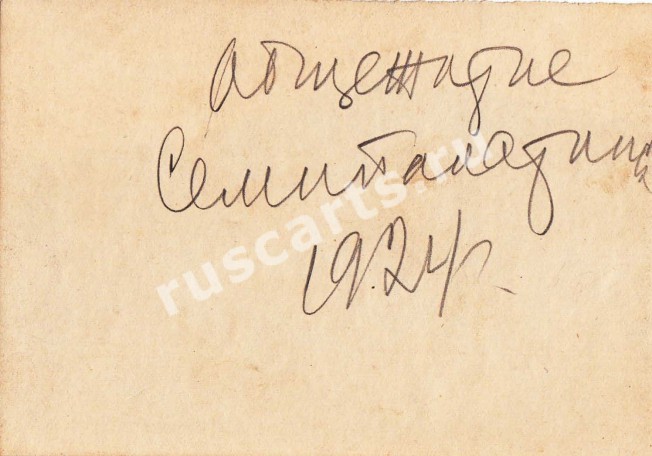 общежитие
Семипалатинск
1924 г.
ruscarts.ru